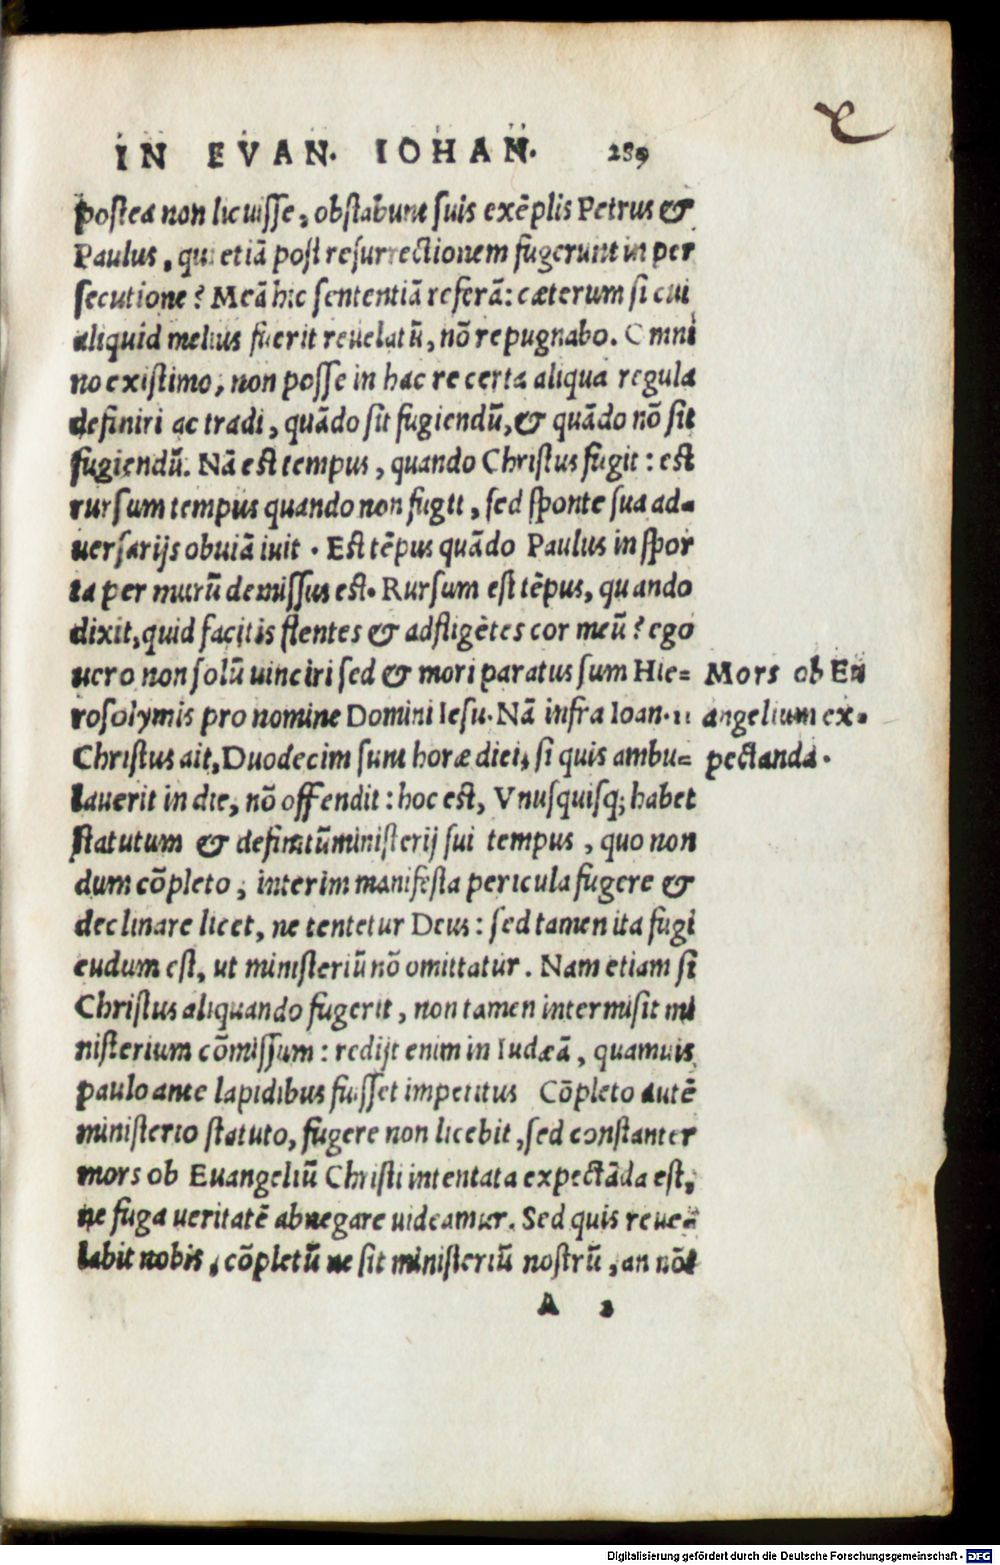 IN EVAN. IOHAN. 289
postea non licuisse, obstabunt suis exẽplis Petrus &
Paulus, qui etiã post resurrectionem fugerunt in per
secutione? Meã hic sententiã referã: cæterum si cui
aliquid melius fuerit reuelatũ, nõ repugnabo. Omni
no existimo, non posse in hac re certa aliqua regula
definiri ac tradi, quãdo sit fugiendũ, & quãdo nõ sit
fugiendũ. Nã est tempus, quando Christus fugit: est
rursum tempus quando non fugit, sed sponte sua ad-
uersarijs obuiã iuit. Est tẽpus quãdo Paulus in spor
ta per murũ demissus est. Rursum est tẽpus, quando
dixit, quid facitis flentes & adfligẽtes cor meũ? ego
uero non solũ uinciri sed & mori paratus sum Hie=
rosolymis pro nomine Domini Iesu. Nã infra Ioan. 11
Christus ait, Duodecim sunt horæ diei, si quis ambu=
lauerit in die, nõ offendit: hoc est, Vnusquisq; habet
statutum & definitũ ministerij sui tempus, quo non
dum cõpleto, interim manifesta pericula fugere &
declinare licet, ne tentetur Deus: sed tamen ita fugi
eudum est, ut ministeriũ nõ omittatur. Nam etiam si
Christus aliquando fugerit, non tamen intermisit mi
nisterium cõmissum: redijt enim in Iudæã, quamuis
paulo ante lapidibus fuisset impetitus Cõpleto autẽ
ministerio statuto, fugere non licebit, sed constanter
mors ob Euangeliũ Christi intentata expectãda est,
ne fuga ueritatẽ abnegare uideamur. Sed quis reue=
labit nobis, cõpletũ ne sit ministeriũ nostrũ, an nõ?
A 2
Mors ob Eu
angelium ex=
pectanda.
Digitalisierung gefördert durch die Deutsche Forschungsgemeinschaft - DFG